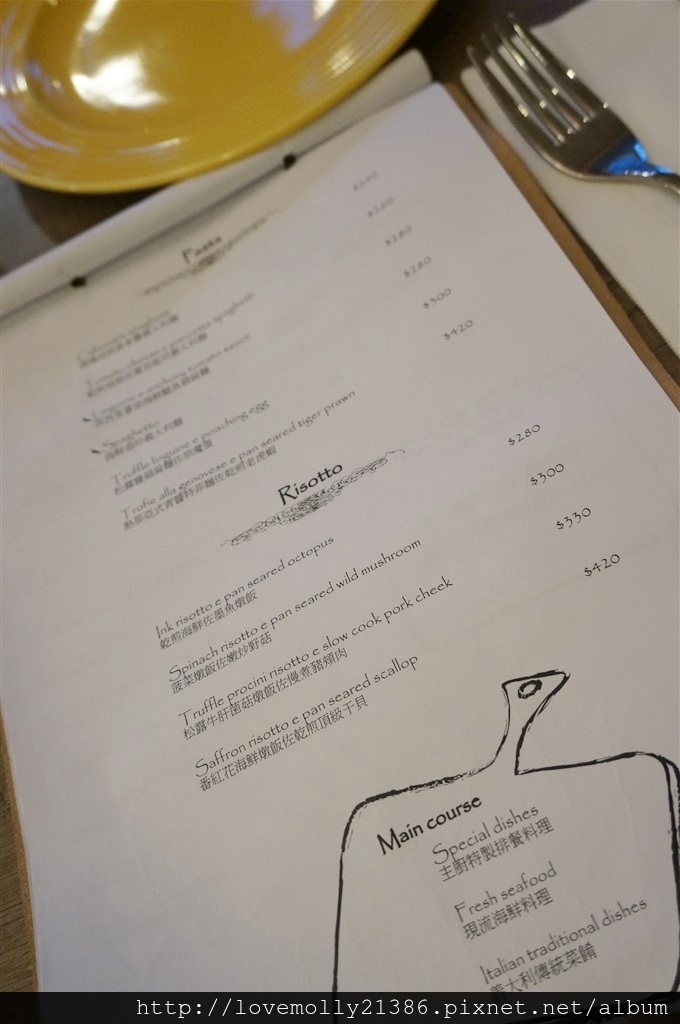 Pasta
$280
$280
$280
$300
$420
Tomato cheese e pancetta spaghetti
Linguine e anchovy tomato sauce
Spaghetto
Truffle linguine e poaching egg
Trofie alla genovese e pan seared tiger prawn
熱那亞式青醬特非麵佐乾煎老虎蝦
Risotto
Ink risotto e pan seared octopus $280
乾煎海鮮佐墨魚燉飯
Spinach risotto e pan seared wild mushroom $300
菠菜燉飯佐嫩炒野菇
Truffle procini risotto e slow cook pork cheek $330
松露牛肝菌菇燉飯佐慢煮豬頰肉
Saffron risotto e pan seared scallop $420
番紅花海鮮燉飯佐乾煎頂級干貝
Main course
Special dishes
主廚特製排餐料理
Fresh seafood
現流海鮮料理
Italian traditional dishes
義大利傳統菜餚
http://lovemolly21386.pixnet.net/album